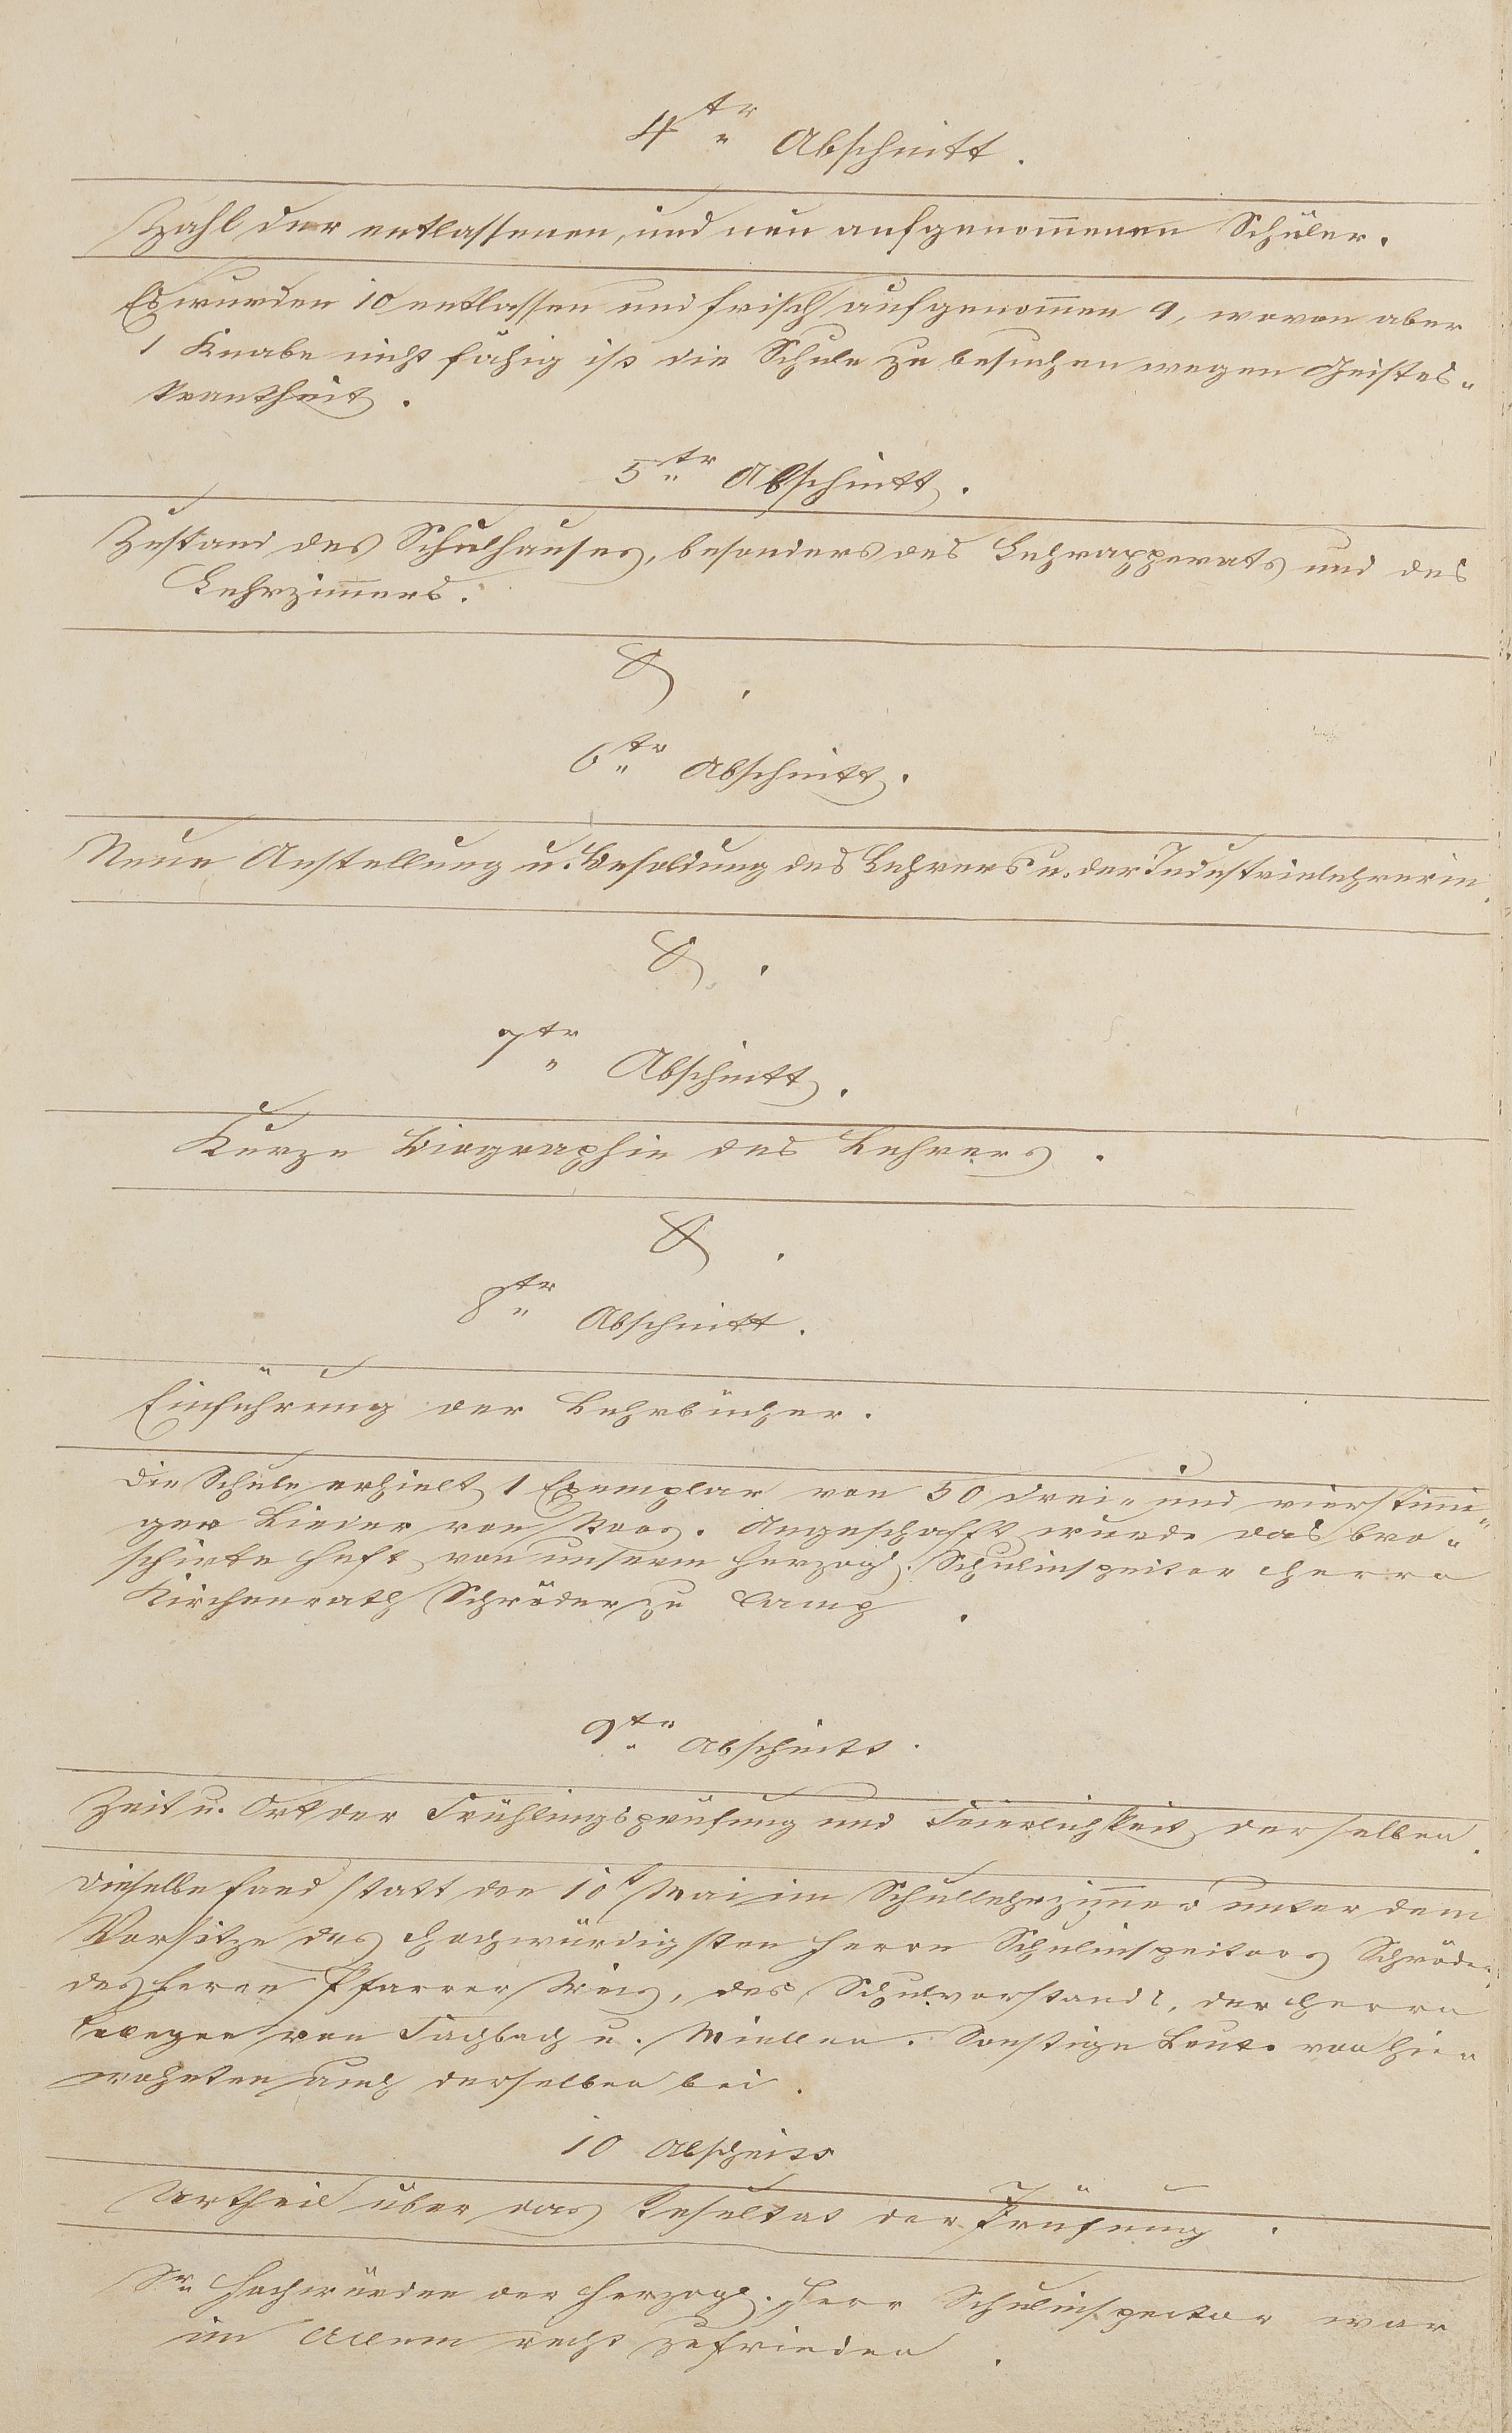 4tr Abschnitt.
Zahl der entlassenen, und neu aufgenom̅enen Schüler.
Es wurden 10 entlassen und frisch aufgenom̅en 9, wovon aber
1 Knabe nicht fähig ist die Schule zu besuchen wegen Geistes-
krankheit.
5tr Abschnitt.
Zustand des Schulhauses, besonders des Lehrapperats und des
Lehrzim̅ers.
6tr Abschnitt.
Neue Anstellung u. Besoldung des Lehrers u. der Industrielehrerin.
7tr Abschnitt.
Kurze Biographie des Lehrers.
8tr Abschnitt.
Einführung der Lehrbücher.
Die Schule erhielt 1 Exemplar von 50 drei- und vierstim̅i-
ger Lieder von. Angeschafft wurde das bro-
schirte Heft von unserem Herzogl. Schulinspector Herrn
Kirchenrath Schröder zu Camp.
9tr Abschnitt.
Zeit u. Ort der Frühlingsprüfung und Feierlichkeit derselben.
Dieselbe fand statt den 10t Mai im Schullehrzim̅er unter dem
Vorsitze des Hochwürdigsten Herrn Schulinspectors Schröder
des Herrn Pfarrer, des Schulvorstands, der Herrn
Collegen von Fachbach u. Miellen. Sonstige Leute von hier
wohnten auch derselben bei.
10 Abschnitt
Urtheil über das Resultat der Prüfung.
Sr Hochwürden der Herzogl. Herr Schulinspector war
im Allem recht zufrieden.